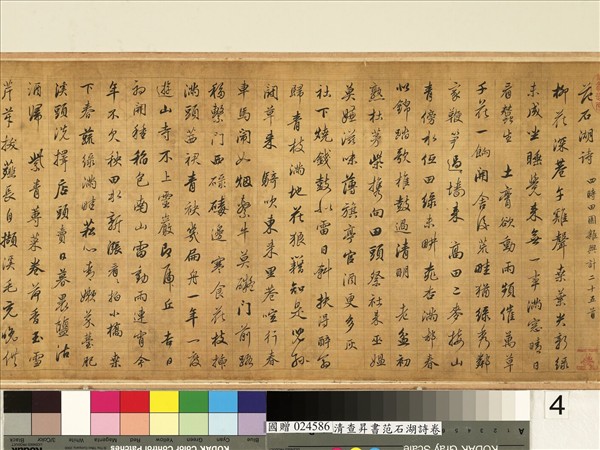 范石湖詩 四時田園雜興計二十五首
柳花深巷午雞聲桑葉尖新綠
未成坐睡覺來無一事滿窗晴日
看蠶生 土膏欲動雨頻催萬草
千花一餉開舍後荒畦猶綠秀鄰
家鞭筍過墻來 高田二麥接山
青傍水低田綠未耕桃杏滿村春
似錦踏歌椎鼓過清明 老盆初
熟杜茅柴攜向田頭祭社來巫媼
莫嫌滋味薄旗亭官酒更多灰
社下燒錢鼓似雷日斜扶得醉翁
歸青枝滿地花狼籍知是兒孫
鬥草來 騎吹東來里巷喧行春
車馬鬧如烟繫牛莫礙門前路
移繫門西碌碡邊 寒食花枝插
滿頭蒨裙青袂幾扁舟一年一度
遊山寺不上靈巖即虎丘 吉日
初開種稻包南山雷動雨連宵今
年不欠秧田水新漲看看拍小橋 桑
下春蔬綠滿畦菘心青嫩芥薹肥
溪頭洗擇店頭賣日暮裹鹽沽
酒歸 紫青蓴菜卷荷香玉雪
芹芽拔薤長自擷溪毛充晚供
4
國贈 024586 清查昇書范石湖詩卷
Blue Cyan Green Yellow Red Magenta
KODAK Color Control Patches
KODAK Gray Scale